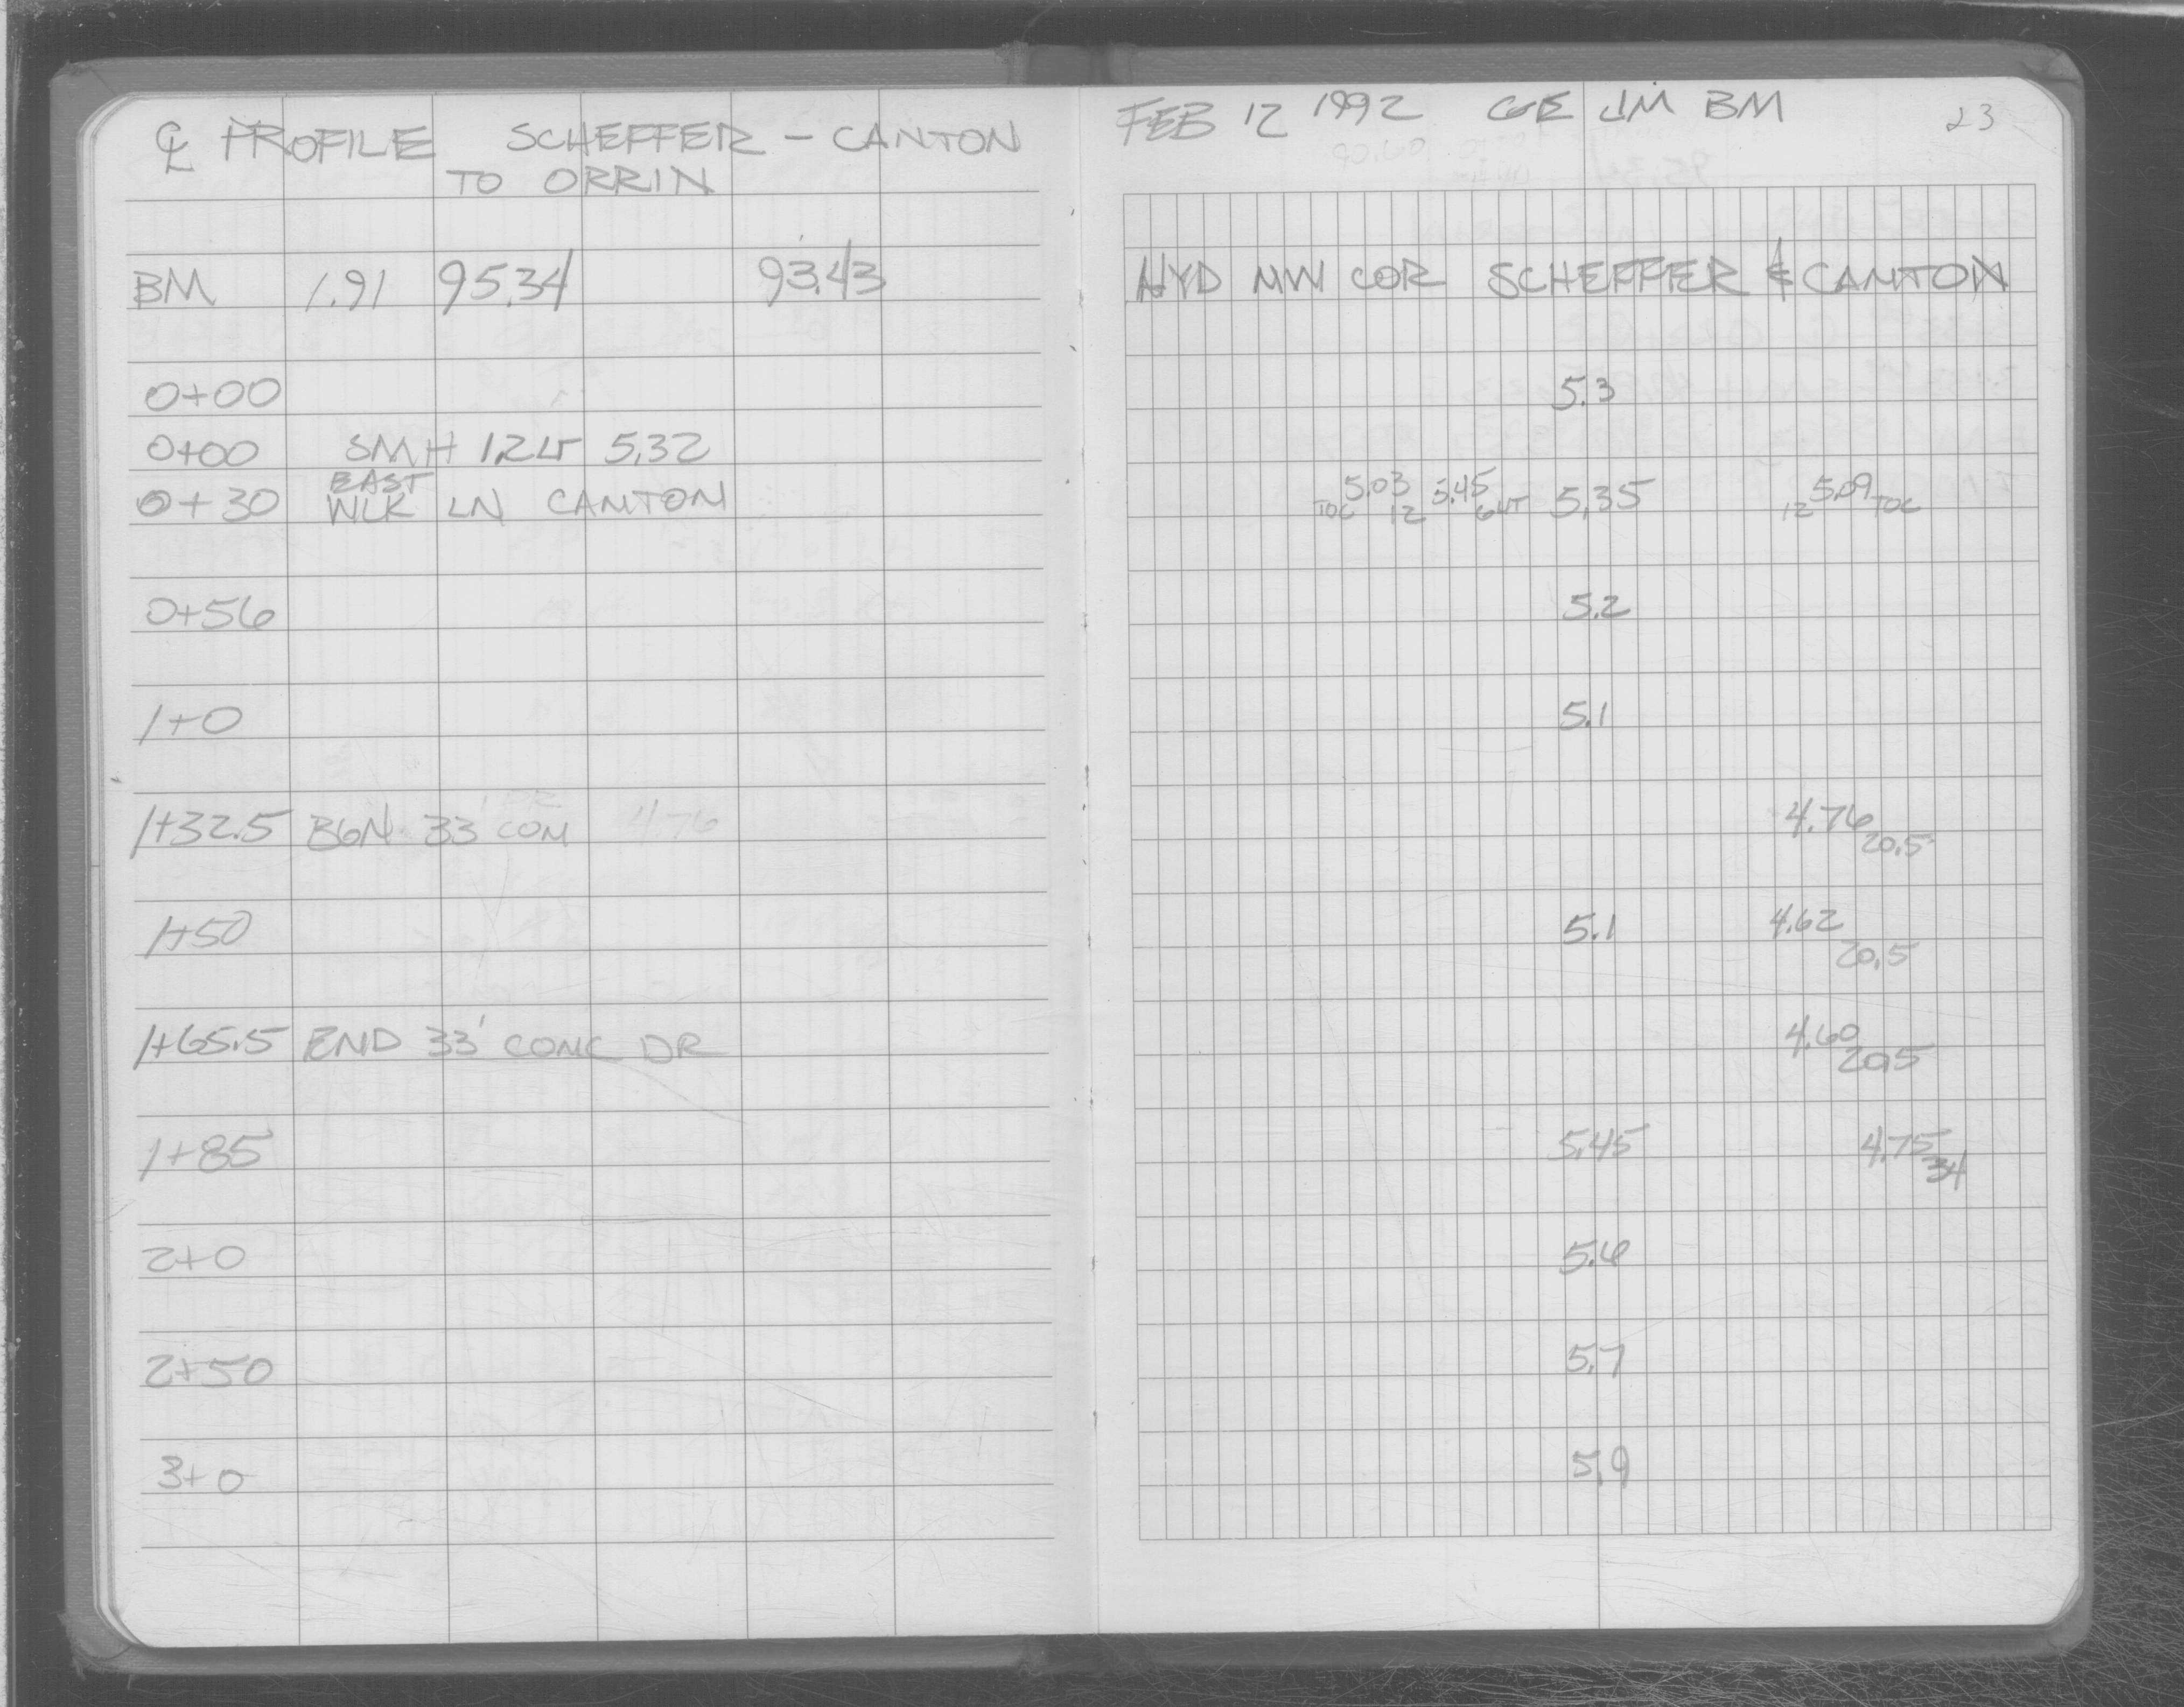 ℄ PROFILE SCHEFFER - CANTON
TO ORRIN
BM 1.91 95.34 93.43
0+00
0+00 SMH 1.2 LT 5.32
EAST
0+30 WLK LN CANTON
0+56
1+0
1+32.5 BGN 33' CON DR 4.76
1+50
1+65.5 END 33' CONC DR
1+85
2+0
2+50
3+0
FEB 12 1992 CGE JM BM 23
HYD NW COR SCHEFFER & CANTON
5.3
TOC 5.03 12 5.45 GUT 5.35 12 5.09 TOC
5.2
5.1
4.76 20.5
5.1 4.62 20.5
4.60 20.5
5.45 4.75 34
5.6
5.7
5.9